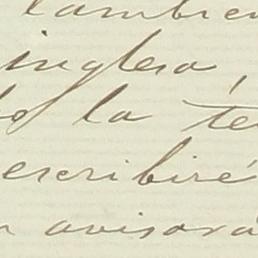 tambien
inglesa,
la te
escribiré
avisara